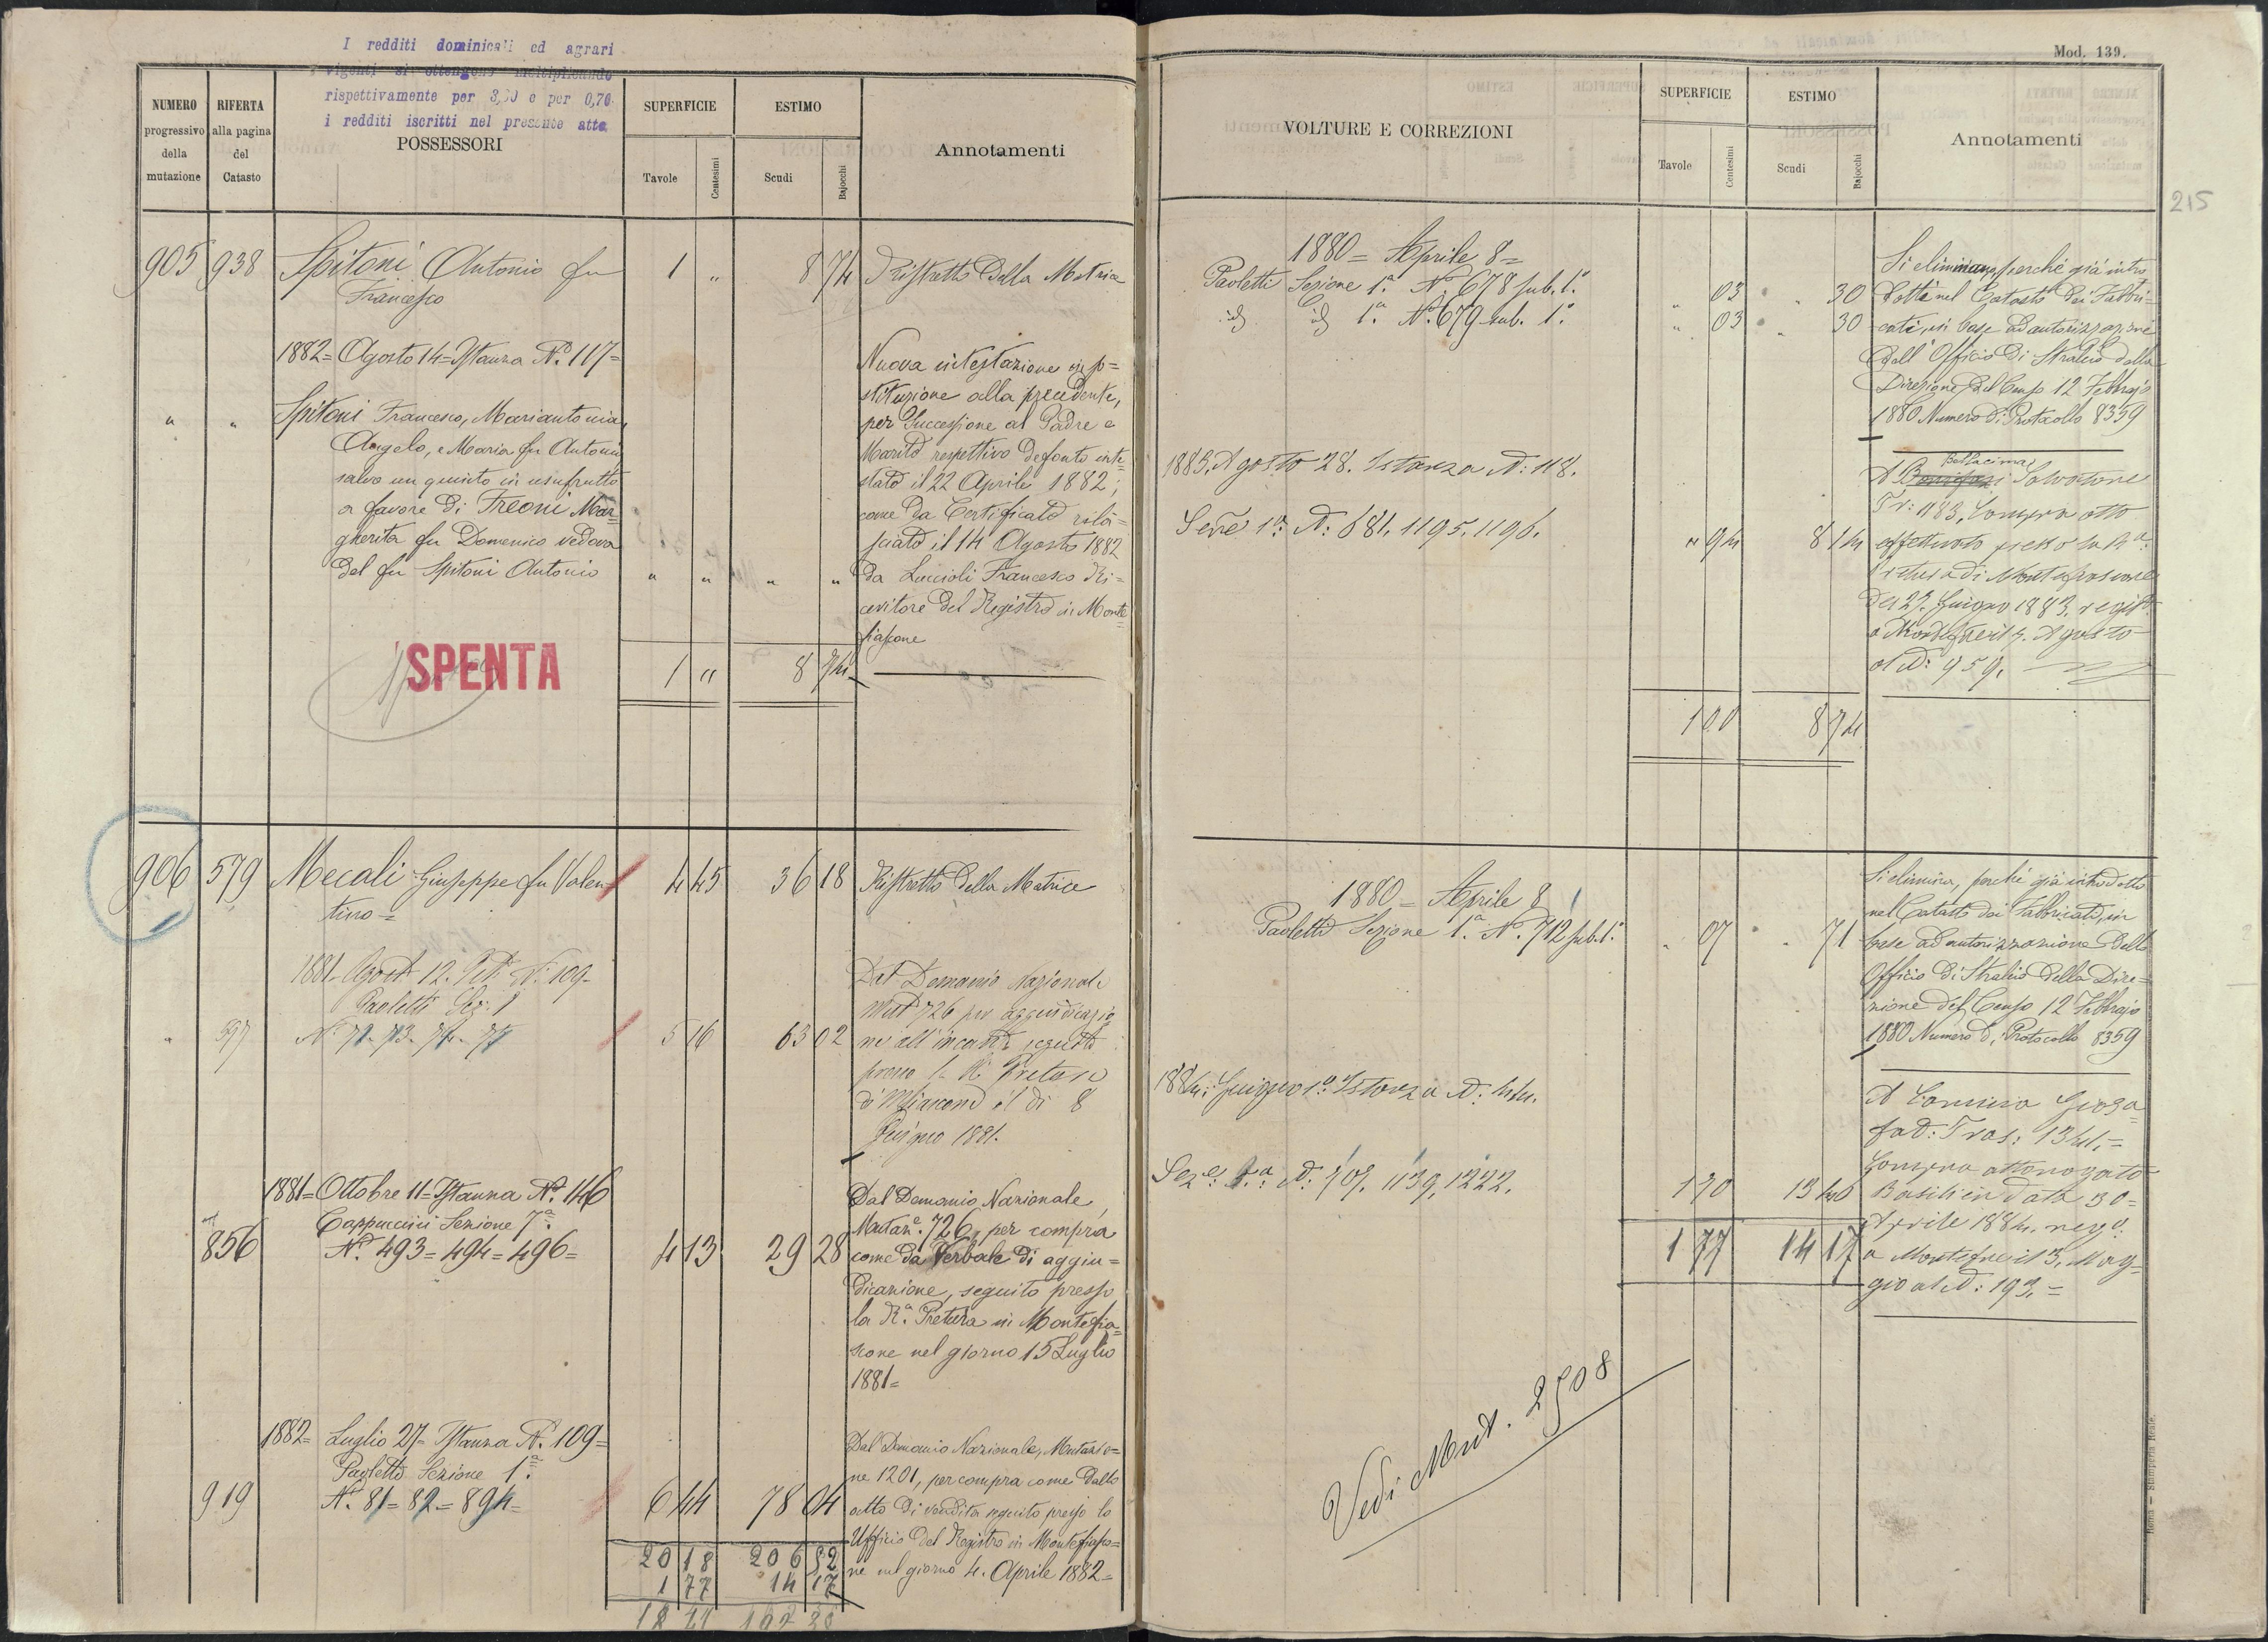 I redditi dominicali ed agrari
vigenti si ottengono moltiplicando
rispettivamente per 3,60 e per 0,70
i redditi iscritti nel presente atto.
NUMERO
progressivo
della
mutazione
RIFERTA
alla pagina
del
Catasto
POSSESSORI
SUPERFICIE
Tavole
Centesimi
ESTIMO
Scudi
Bajocchi
Annotamenti
905 938 Spitoni Antonio fu 1 " 8 74 Ristretto della Matrice
Francesco
1882 = Agosto 14 = Istanza N.º 117 =
" " Spitoni Francesco, Mariantonia,
Angelo, e Maria fu Antonio
salvo un quinto in usufrutto
a favore di Freoni Mar=
gherita fu Domenico vedova
del fu Spitoni Antonio " " " "
Nuova intestazione in so=
stituzione alla precedente,
per Successione al Padre e
Marito respettivo defonto inte=
stato il 22 Aprile 1882;
come da Certificato rila=
sciato il 14 Agosto 1882
da Luccioli Francesco Ri=
cevitore del Registro in Monte=
fiascone
SPENTA
1 " 8 74
906 579 Mecali Giuseppe fu Valen= 4 45 36 18 Ristretto della Matrice
tino =
1881 Agosto 12. N. 109 -
Paoletti Sez. 1
" 597 N. 71. 73. 74. 5 16 63 02
Dal Demanio Nazionale
Mut 726 per aggiudicazio
ne all'incanto seguito
presso la R. Pretura
di Mfiascone il di 8
Giugno 1881.
1881 = Ottobre 11 = Istanza N.º 146
Cappuccini Sezione 7ª.
856 N.º 493 = 494 = 496 = 4 13 29 28
Dal Demanio Nazionale,
Mutazº. 726, per compra
come da Verbale di aggiu=
dicazione, seguito presso
la R.ª Pretura in Montefia=
scone nel giorno 15 Luglio
1881 =
1882 = Luglio 27 = Istanza N.º 109 =
Paoletto Sezione 1ª.
919 N.º 81 = 82 = 894 = 6 44 78 04
Dal Demanio Nazionale, Mutazio=
ne 1201, per compra come dallo
atto di vendita seguito presso lo
Ufficio del Registro in Montefiasco=
ne nel giorno 4. Aprile 1882 =
20 18 206 52
1 77 14 17
18 41 192 35
Mod. 139.
215
VOLTURE E CORREZIONI
SUPERFICIE
Tavole
Centesimi
ESTIMO
Scudi
Bajocchi
Annotamenti
1880 = Aprile 8 =
Paoletti Sezione 1.ª N.º 678 sub. 1.º " 03 " 30
id id 1.ª N.º 679 sub. 1.º " 03 " 30
Si eliminano, perchè già intro
dotti nel Catasto dei Fabbri=
cati, in base ad autorizzazione
dell'Officio di Stralcio della
Direzione del Censo 12 Febbrajo
1880 Numero di Protocollo 8359
1883. Agosto 28. Istanza N: 118.
Sezº 1ª N: 681. 1195. 1196. " 94 8 14
Bellacima
A Salvatore
Tr: 1183, Compra atto
effettuato presso la Rª.
Pretura di Montefiascone
del 27. Giugno 1883. registº
a Montefne il 5. Agosto
al N: 959.
1 00 8 74
1880 = Aprile 8
Paoletto Sezione 1.ª N.º 712 sub. 1.º " 07 " 71
Si elimina, perchè già introdotto
nel Catasto dei Fabbricati, in
base ad autorizzazione dello
Officio di Stralcio della Dire=
zione del Censo 12 Febbrajo
1880 Numero di Protocollo 8359
1884: Giugno 1º Istanza N: 44.
Sezº: 1.ª N: 707. 1139, 1222. 1 70 13 46
A Cannina Giosa=
fad: Tras: 1341. =
Compra atto rogato
Basili in data 30 =
Aprile 1884. regº.
a Montefne il 3, Mag=
gio al N: 193. =
1 77 14 17
Vedi Mut. 2508
Roma — Stamperia Reale.